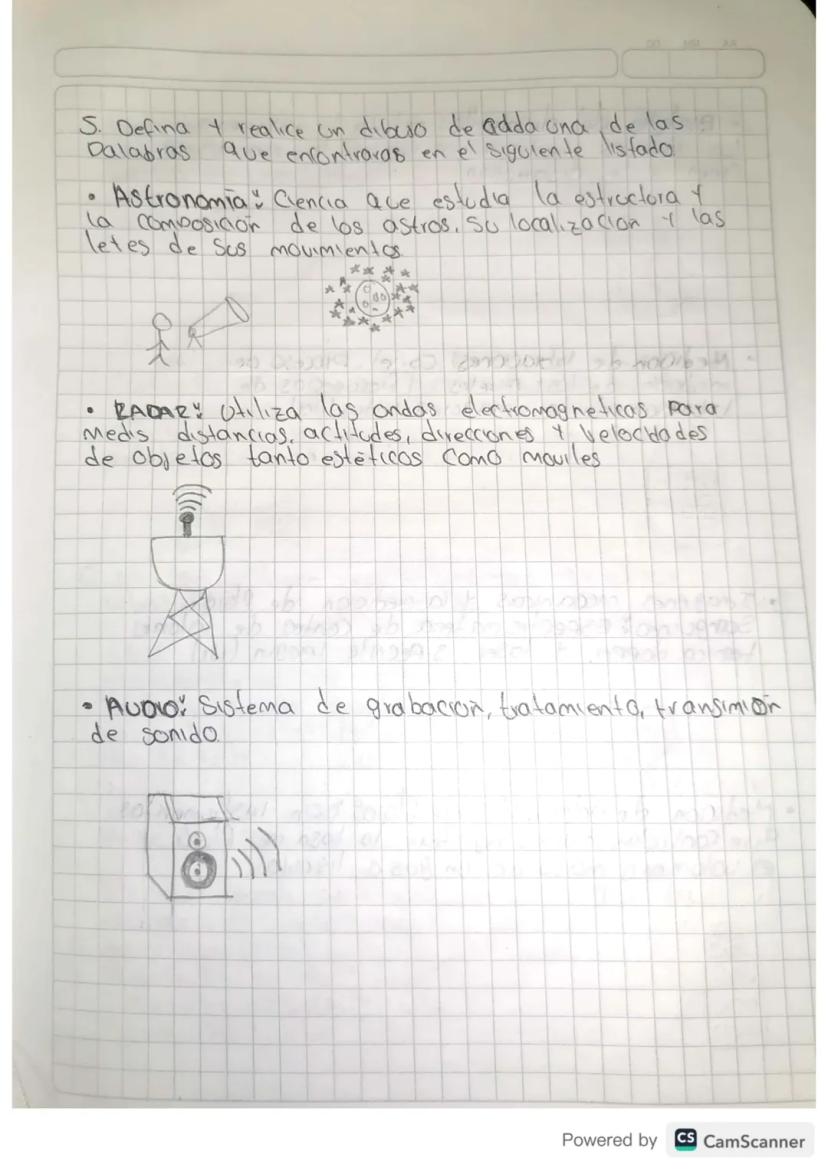 5. Defina y realice un dibujo de cada una de las
Palabras que encontraras en el siguiente listado
• Astronomía: Ciencia que estudia la estructura y
la composición de los astros, su localización y las
letes de sus movimientos
• RADAR: Utiliza las ondas electromagneticas para
Medis distancias, actitudes, direcciones y velocidades
de objetos tanto estéticos como moviles
• AUDIO: Sistema de grabación, tratamiento, transimión
de sonido.
Powered by CS CamScanner